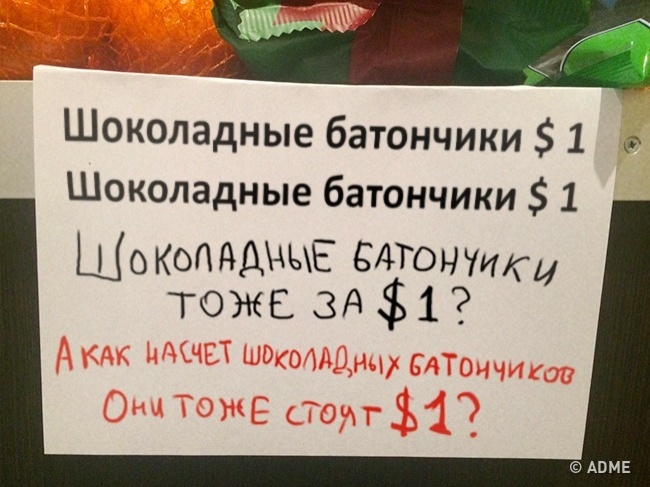 Шоколадные батончики $ 1
Шоколадные батончики $ 1
ШОКОЛАДНЫЕ БАТОНЧИКИ
ТОЖЕ ЗА $1?
А КАК НАСЧЕТ ШОКОЛАДНЫХ БАТОНЧИКОВ
ОНИ ТОЖЕ СТОЯТ $1?
© ADME